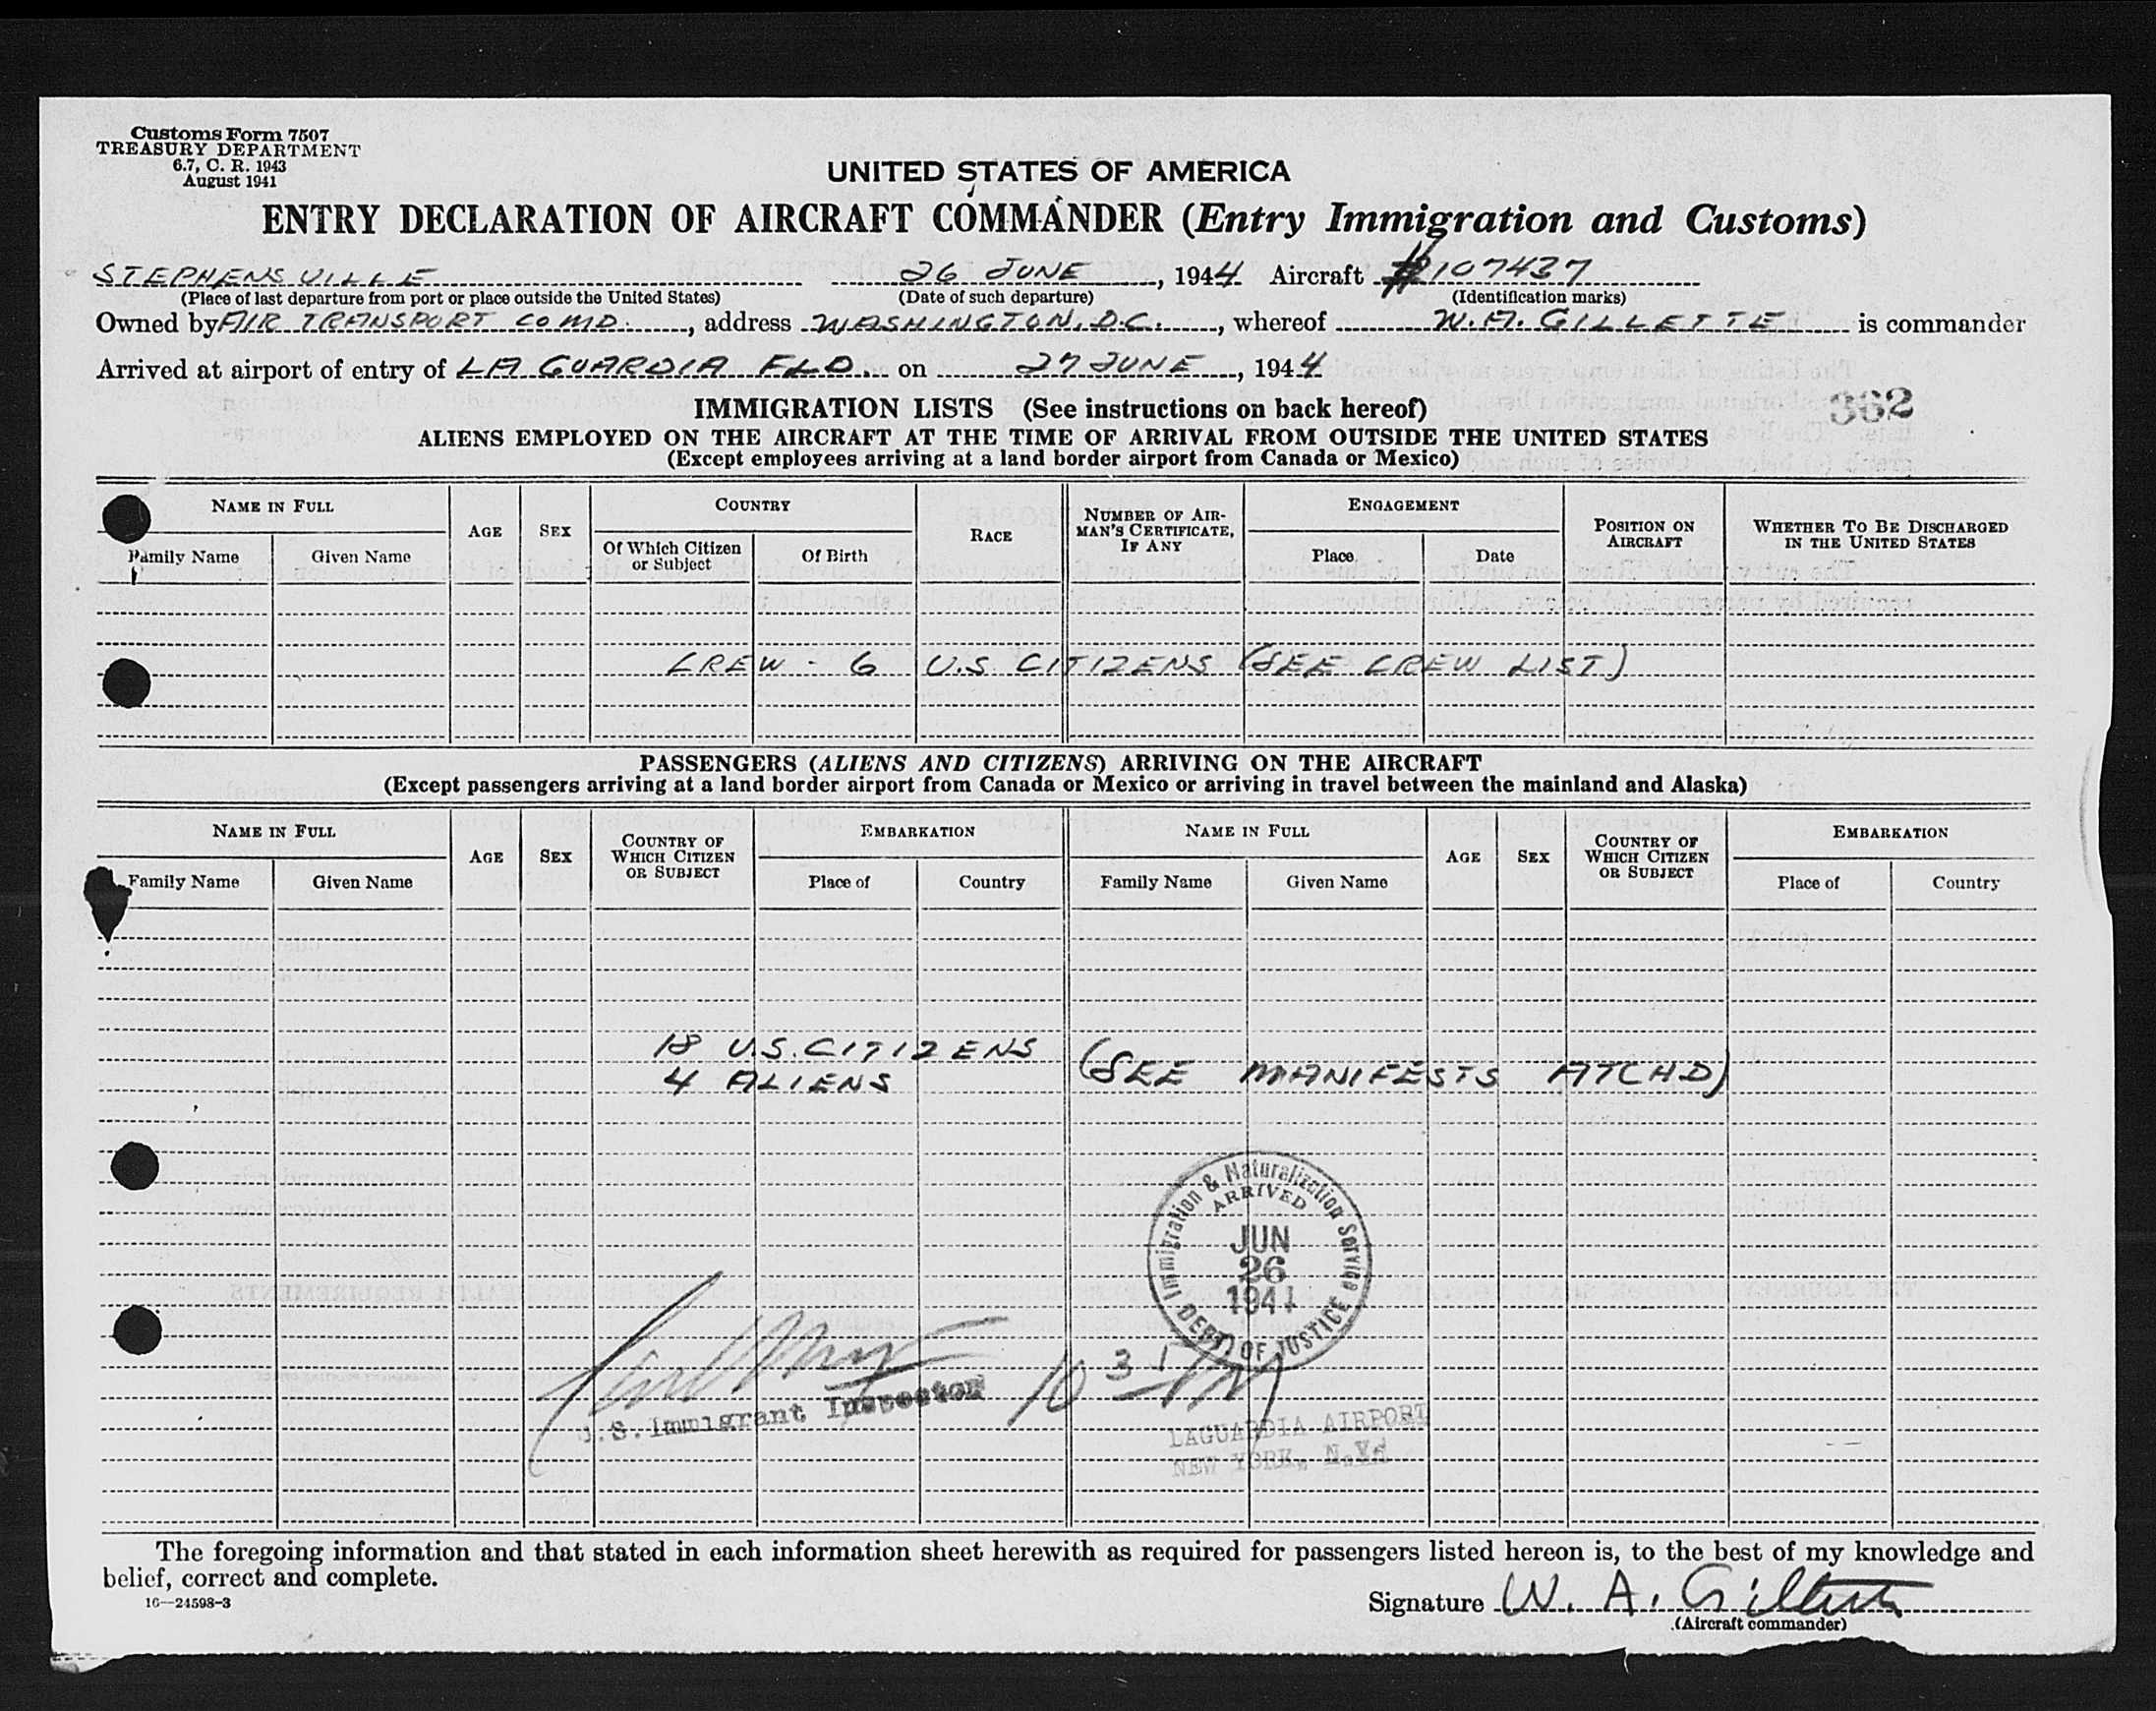 Customs Form 7507
TREASURY DEPARTMENT
6.7, C. R. 1943
August 1941
UNITED STATES OF AMERICA
ENTRY DECLARATION OF AIRCRAFT COMMANDER (Entry Immigration and Customs)
STEPHENSVILLE 26 JUNE, 1944 Aircraft #107437
(Place of last departure from port or place outside the United States) (Date of such departure) (Identification marks)
Owned by AIR TRANSPORT COMD., address WASHINGTON, D.C., whereof W.A. GILLETTE is commander
Arrived at airport of entry of LA GUARDIA FLD. on 27 JUNE, 1944
362
IMMIGRATION LISTS (See instructions on back hereof)
ALIENS EMPLOYED ON THE AIRCRAFT AT THE TIME OF ARRIVAL FROM OUTSIDE THE UNITED STATES
(Except employees arriving at a land border airport from Canada or Mexico)
NAME IN FULL AGE SEX COUNTRY RACE NUMBER OF AIRMAN'S CERTIFICATE, IF ANY ENGAGEMENT POSITION ON AIRCRAFT WHETHER TO BE DISCHARGED IN THE UNITED STATES
Family Name Given Name Of Which Citizen or Subject Of Birth Place Date
CREW - 6 U.S. CITIZENS (SEE CREW LIST)
PASSENGERS (ALIENS AND CITIZENS) ARRIVING ON THE AIRCRAFT
(Except passengers arriving at a land border airport from Canada or Mexico or arriving in travel between the mainland and Alaska)
NAME IN FULL AGE SEX COUNTRY OF WHICH CITIZEN OR SUBJECT EMBARKATION NAME IN FULL AGE SEX COUNTRY OF WHICH CITIZEN OR SUBJECT EMBARKATION
Family Name Given Name Place of Country Family Name Given Name Place of Country
18 U.S. CITIZENS
4 ALIENS (SEE MANIFESTS ATCHD)
Immigration & Naturalization Service
ARRIVED
JUN
26
1944
DEPT OF JUSTICE
U.S. Immigrant Inspector
LAGUARDIA AIRPORT
NEW YORK, N.Y.
The foregoing information and that stated in each information sheet herewith as required for passengers listed hereon is, to the best of my knowledge and
belief, correct and complete.
16—24598-3
Signature W. A. Gillette
(Aircraft commander)